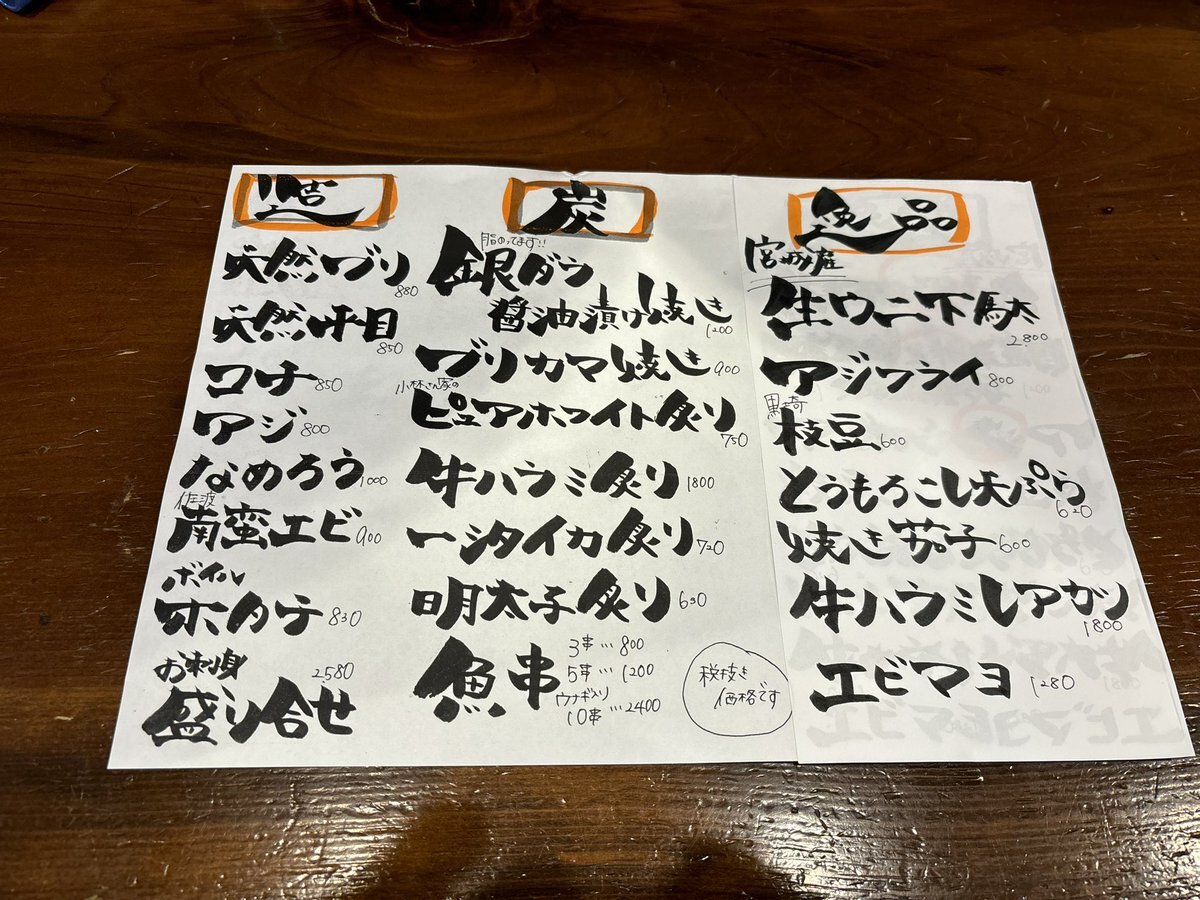 造
天然ブリ 880
天然平目 850
コチ 850
アジ 800
なめろう 1000
佐渡
南蛮エビ 900
ボイル
ホタテ 830
お刺身 2,580
盛り合せ
炭
脂のってます!!
銀ダラ
醤油漬け焼き 1200
ブリカマ焼き 900
小林さん家の
ピュアホワイト炙り 750
牛ハラミ炙り 1800
一汐イカ炙り 720
明太子炙り 650
魚串
3串…800
5串…1200
ウナギ入り
10串…2400
税抜き
価格です
逸品
宮城産
生ウニ下駄 2,800
アジフライ 800
黒埼
枝豆 600
とうもろこし天ぷら 620
焼き茄子 600
牛ハラミレアカツ 1800
エビマヨ 1280